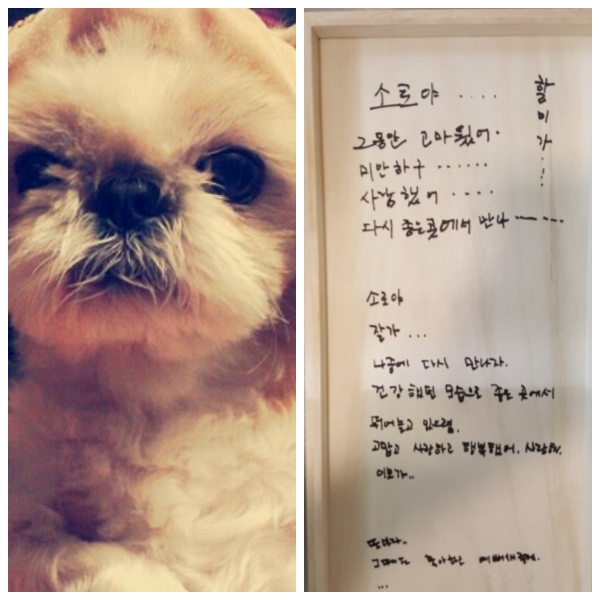 소로야 ....
할미가..!
그동안 고마웠어.
미안하구 ......
사랑했어 ....
다시 좋은곳에서 만나
소로야
잘가 ...
나중에 다시 만나자.
건강했던 모습으로 좋은 곳에서
뛰어놀고 있으렴.
고맙고 사랑하고 행복했어. 사랑해.
이모가..
또보자.
그때도
...